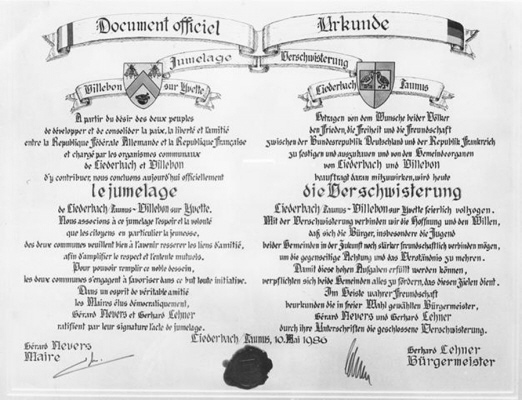 Document officiel
Urkunde
Jumelage
Verschwisterung
Villebon sur Yvette
Liederbach Taunus
A partir du désir des deux peuples
de développer et de consolider la paix, la liberté et l'amitié
entre la République Fédérale Allemande et la République Française
et chargé par les organismes communaux
de Liederbach et Villebon
d'y contribuer, nous concluons aujourd'hui officiellement
le jumelage
de Liederbach Taunus - Villebon sur Yvette.
Nous associons à ce jumelage l'espoir et la volonté
que les citoyens en particulier la jeunesse,
des deux communes veuillent bien à l'avenir resserer les liens d'amitié,
afin d'amplifier le respect et l'entente mutuels.
Pour pouvoir remplir ce noble dessein,
les deux communes s'engagent à favoriser dans ce but toute initiative.
Dans un esprit de véritable amitié
les Maires élus démocratiquement,
Gérard Nevers et Gerhard Lehner
ratifient par leur signature l'acte de jumelage.
Getragen von dem Wunsche beider Völker
den Frieden, die Freiheit und die Freundschaft
zwischen der Bundesrepublik Deutschland und der Republik Frankreich
zu festigen und auszubauen und von den Gemeindeorganen
von Liederbach und Villebon
beauftragt daran mitzuwirken, wird heute
die Verschwisterung
Liederbach Taunus - Villebon sur Yvette feierlich vollzogen.
Mit der Verschwisterung verbinden wir die Hoffnung und den Willen,
daß sich die Bürger, insbesondere die Jugend
beider Gemeinden in der Zukunft noch stärker freundschaftlich verbinden mögen,
um die gegenseitige Achtung und das Verständnis zu mehren.
Damit diese hohen Aufgaben erfüllt werden können,
verpflichten sich beide Gemeinden alles zu fördern, das diesen Zielen dient.
Im Geiste wahrer Freundschaft
beurkunden die in freier Wahl gewählten Bürgermeister,
Gérard Nevers und Gerhard Lehner
durch ihre Unterschriften die geschlossene Verschwisterung.
Liederbach Taunus, 10. Mai 1986
Gérard Nevers
Maire
Gerhard Lehner
Bürgermeister